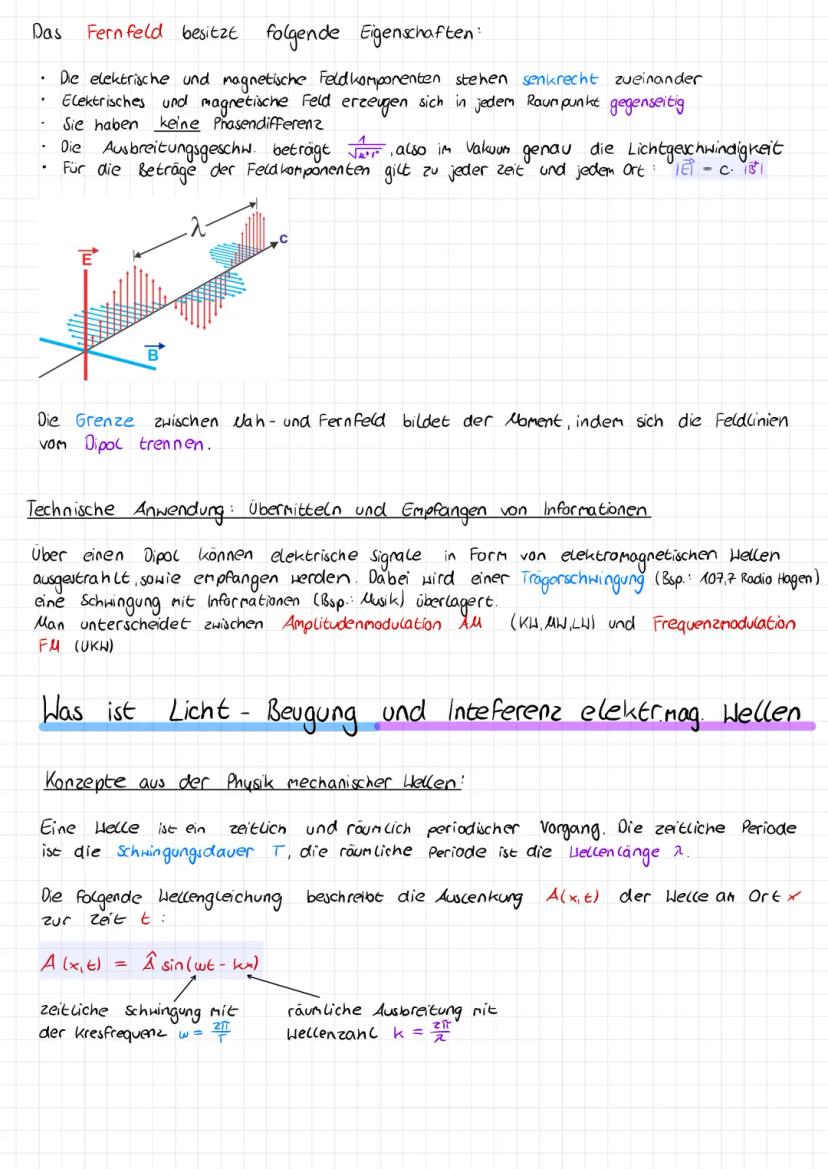 Das Fernfeld besitzt folgende Eigenschaften:
· Die elektrische und magnetische Feldkomponenten stehen senkrecht zueinander
· Elektrisches und magnetische Feld erzeugen sich in jedem Raumpunkt gegenseitig
· Sie haben keine Phasendifferenz
· Die Ausbreitungsgeschw. beträgt, also im Vakuum genau die Lichtgeschwindigkeit
· Für die Beträge der Feldkomponenten gilt zu jeder Zeit und jedem Ort: |E⃗| = c · |B⃗|
λ
c
E⃗
B⃗
Die Grenze zwischen Nah- und Fernfeld bildet der Moment, indem sich die Feldlinien
vom Dipol trennen.
Technische Anwendung: Übermitteln und Empfangen von Informationen
Über einen Dipol können elektrische Signale in Form von elektromagnetischen Wellen
ausgestrahlt, sowie empfangen werden. Dabei wird einer Trägerschwingung (Bsp.: 107,7 Radio Hagen)
eine Schwingung mit Informationen (Bsp.: Musik) überlagert.
Man unterscheidet zwischen Amplitudenmodulation AM (KW, MW, LW) und Frequenzmodulation
FM (UKW)
Was ist Licht - Beugung und Inteferenz elektr.mag. Wellen
Konzepte aus der Physik mechanischer Wellen:
Eine Welle ist ein zeitlich und räumlich periodischer Vorgang. Die zeitliche Periode
ist die Schwingungsdauer T, die räumliche Periode ist die Wellenlänge λ.
Die folgende Wellengleichung beschreibt die Auslenkung A(x,t) der Welle am Ort x
zur Zeit t:
A(x,t) = Â sin(ωt - kx)
zeitliche Schwingung mit
der Kresfrequenz ω = 2π/T
räumliche Ausbreitung mit
Wellenzahl k = 2π/λ